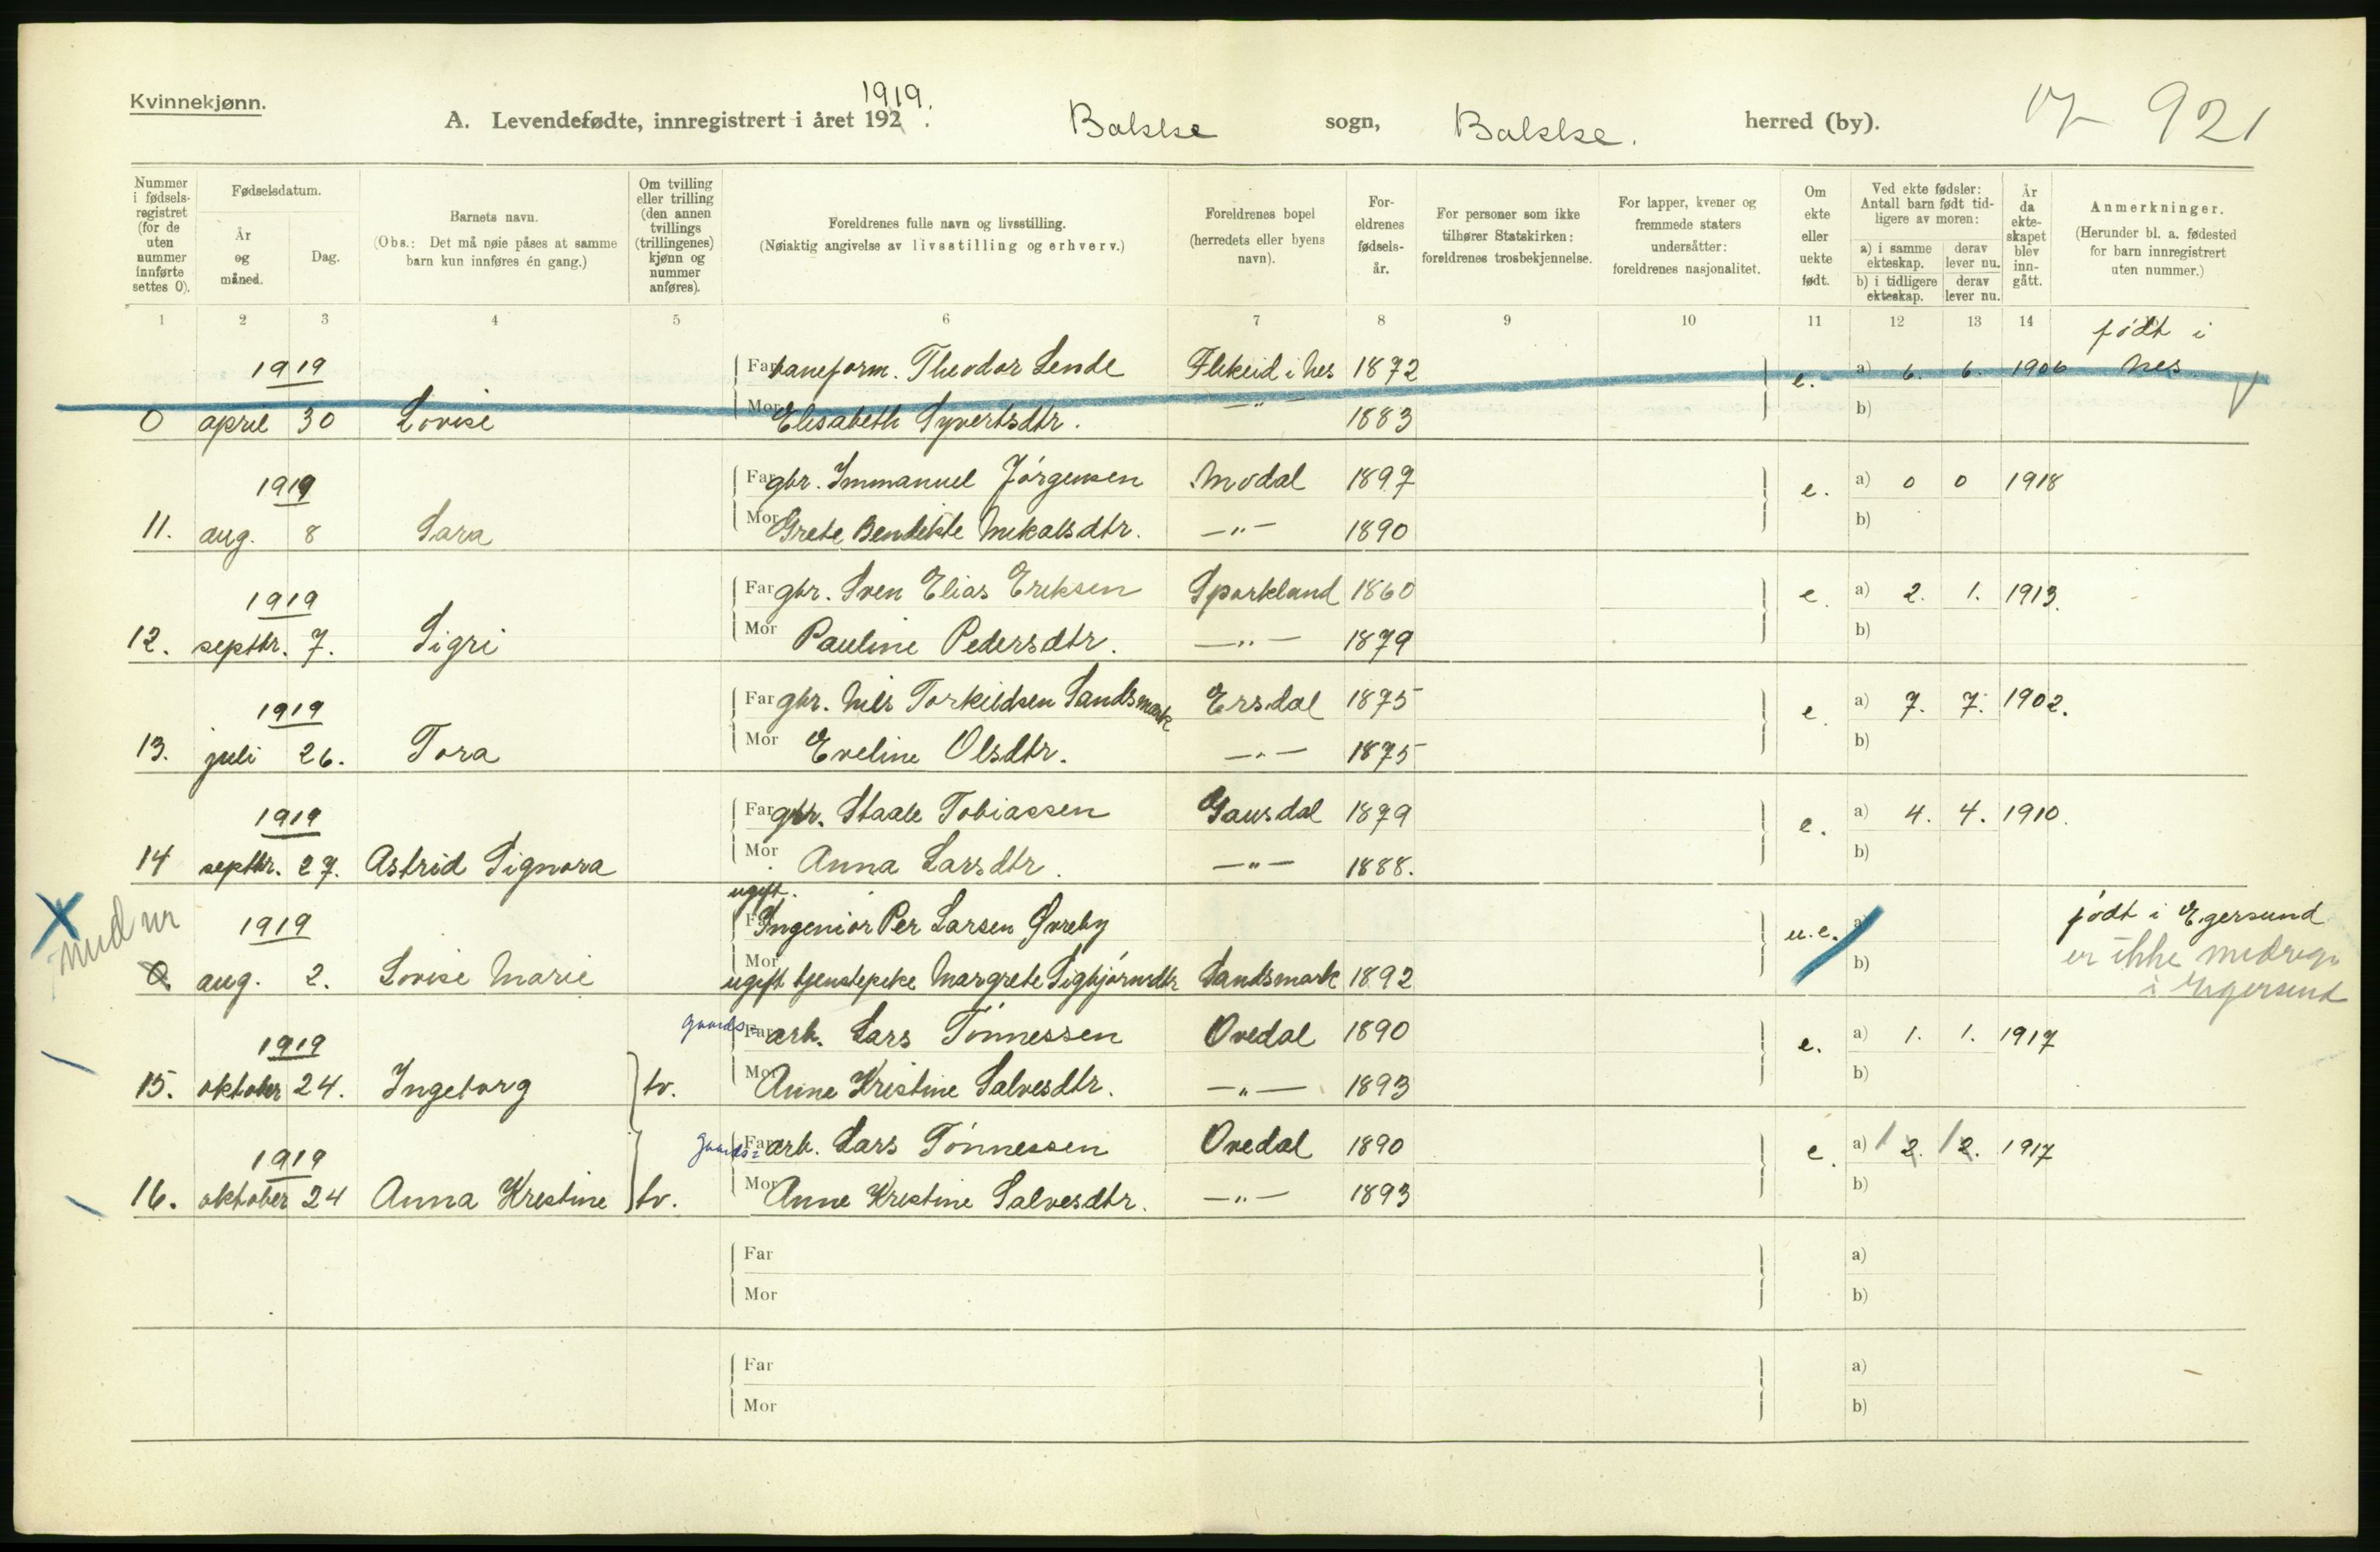 Kvinnekjønn.
A. Levendefødte, innregistrert i året 192 1919. Bakke sogn, Bakke. herred (by). 17 921
Nummer i fødselsregistret (for de uten nummer innførte settes 0).
Fødselsdatum.
År og måned.
Dag.
Barnets navn.
(Obs.: Det må nøie påses at samme barn kun innføres én gang.)
Om tvilling eller trilling (den annen tvillings (trillingenes) kjønn og nummer anføres).
Foreldrenes fulle navn og livsstilling.
(Nøiaktig angivelse av livsstilling og erhverv.)
Foreldrenes bopel (herredets eller byens navn).
Foreldrenes fødselsår.
For personer som ikke tilhører Statskirken: foreldrenes trosbekjennelse.
For lapper, kvener og fremmede staters undersåtter: foreldrenes nasjonalitet.
Om ekte eller uekte født.
Ved ekte fødsler: Antall barn født tidligere av moren:
a) i samme ekteskap. derav lever nu.
b) i tidligere ekteskap. derav lever nu.
År da ekteskapet blev inngått.
Anmerkninger.
(Herunder bl. a. fødested for barn innregistrert uten nummer.)
1 2 3 4 5 6 7 8 9 10 11 12 13 14
født i
1919 Far baneform. Theodor Lende Flikeid i Nes 1872 e. a) 6. 6. 1906 Nes
0 april 30 Lovise Mor Elisabeth Syvertsdtr. —"— 1883 b)
1919 Far gbr. Immanuel Jørgensen Modal 1897 e. a) 0 0 1918
11. aug. 8 Sara Mor Grete Bendikte Mikalsdtr. —"— 1890 b)
1919 Far gbr. Sven Elias Eriksen Sporkland 1860 e. a) 2. 1. 1913.
12. septbr. 7. Sigri Mor Pauline Pedersdtr. —"— 1879 b)
1919 Far gbr. Nils Torkildsen Sandsmark Ersdal 1875 e. a) 7. 7. 1902.
13. juli 26. Tora Mor Eveline Olsdtr. —"— 1875 b)
1919 Far gbr. Staale Tobiassen Gausdal 1879 e. a) 4. 4. 1910.
14 septbr. 27. Astrid Signora Mor Anna Larsdtr. —"— 1888. b)
ugift.
1919 Far Ingeniør Per Larsen u.e. a) født i Egersund
0 aug. 2. Lovise Marie Mor ugift tjenstepike Margrete Sigbjørnsdtr Sandsmark 1892 b) er ikke
i Egersund
1919 Far arb. Lars Tønnessen Ovedal 1890 e. a) 1. 1. 1917
15. oktober 24. Ingeborg tv. Mor Anne Kristine Salvesdtr. —"— 1893 b)
1919 Far arb. Lars Tønnessen Ovedal 1890 e. a) 1 2. 1 2. 1917
16. oktober 24 Anna Kristine tv. Mor Anne Kristine Salvesdtr. —"— 1893 b)
Far a)
Mor b)
Far a)
Mor b)